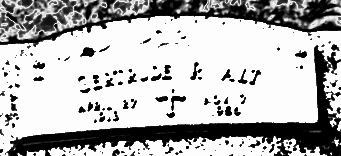 GERTRUDE R ALT
APR. 27 AUG 7
1913 1986